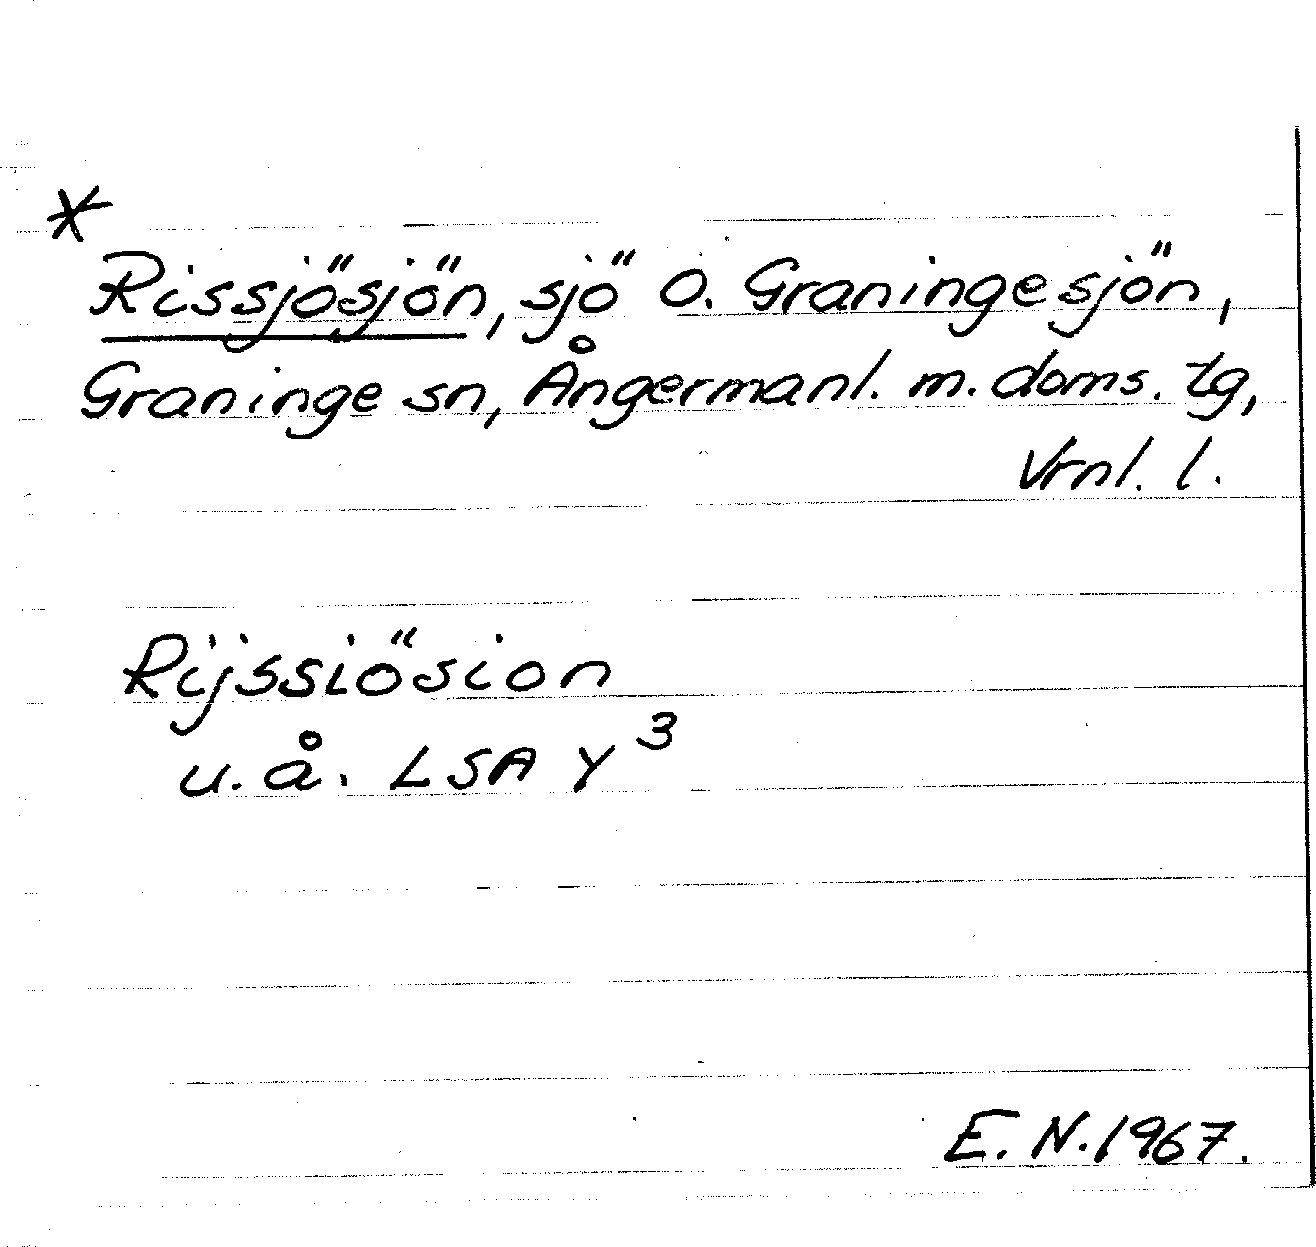 *
Rissjösjön, sjö o. Graningesjön,
Graninge sn, Ångermanl. m. doms. tg,
Vrnl. l.
Rijssiösion
u. å. LSA Y³
E. N. 1967.